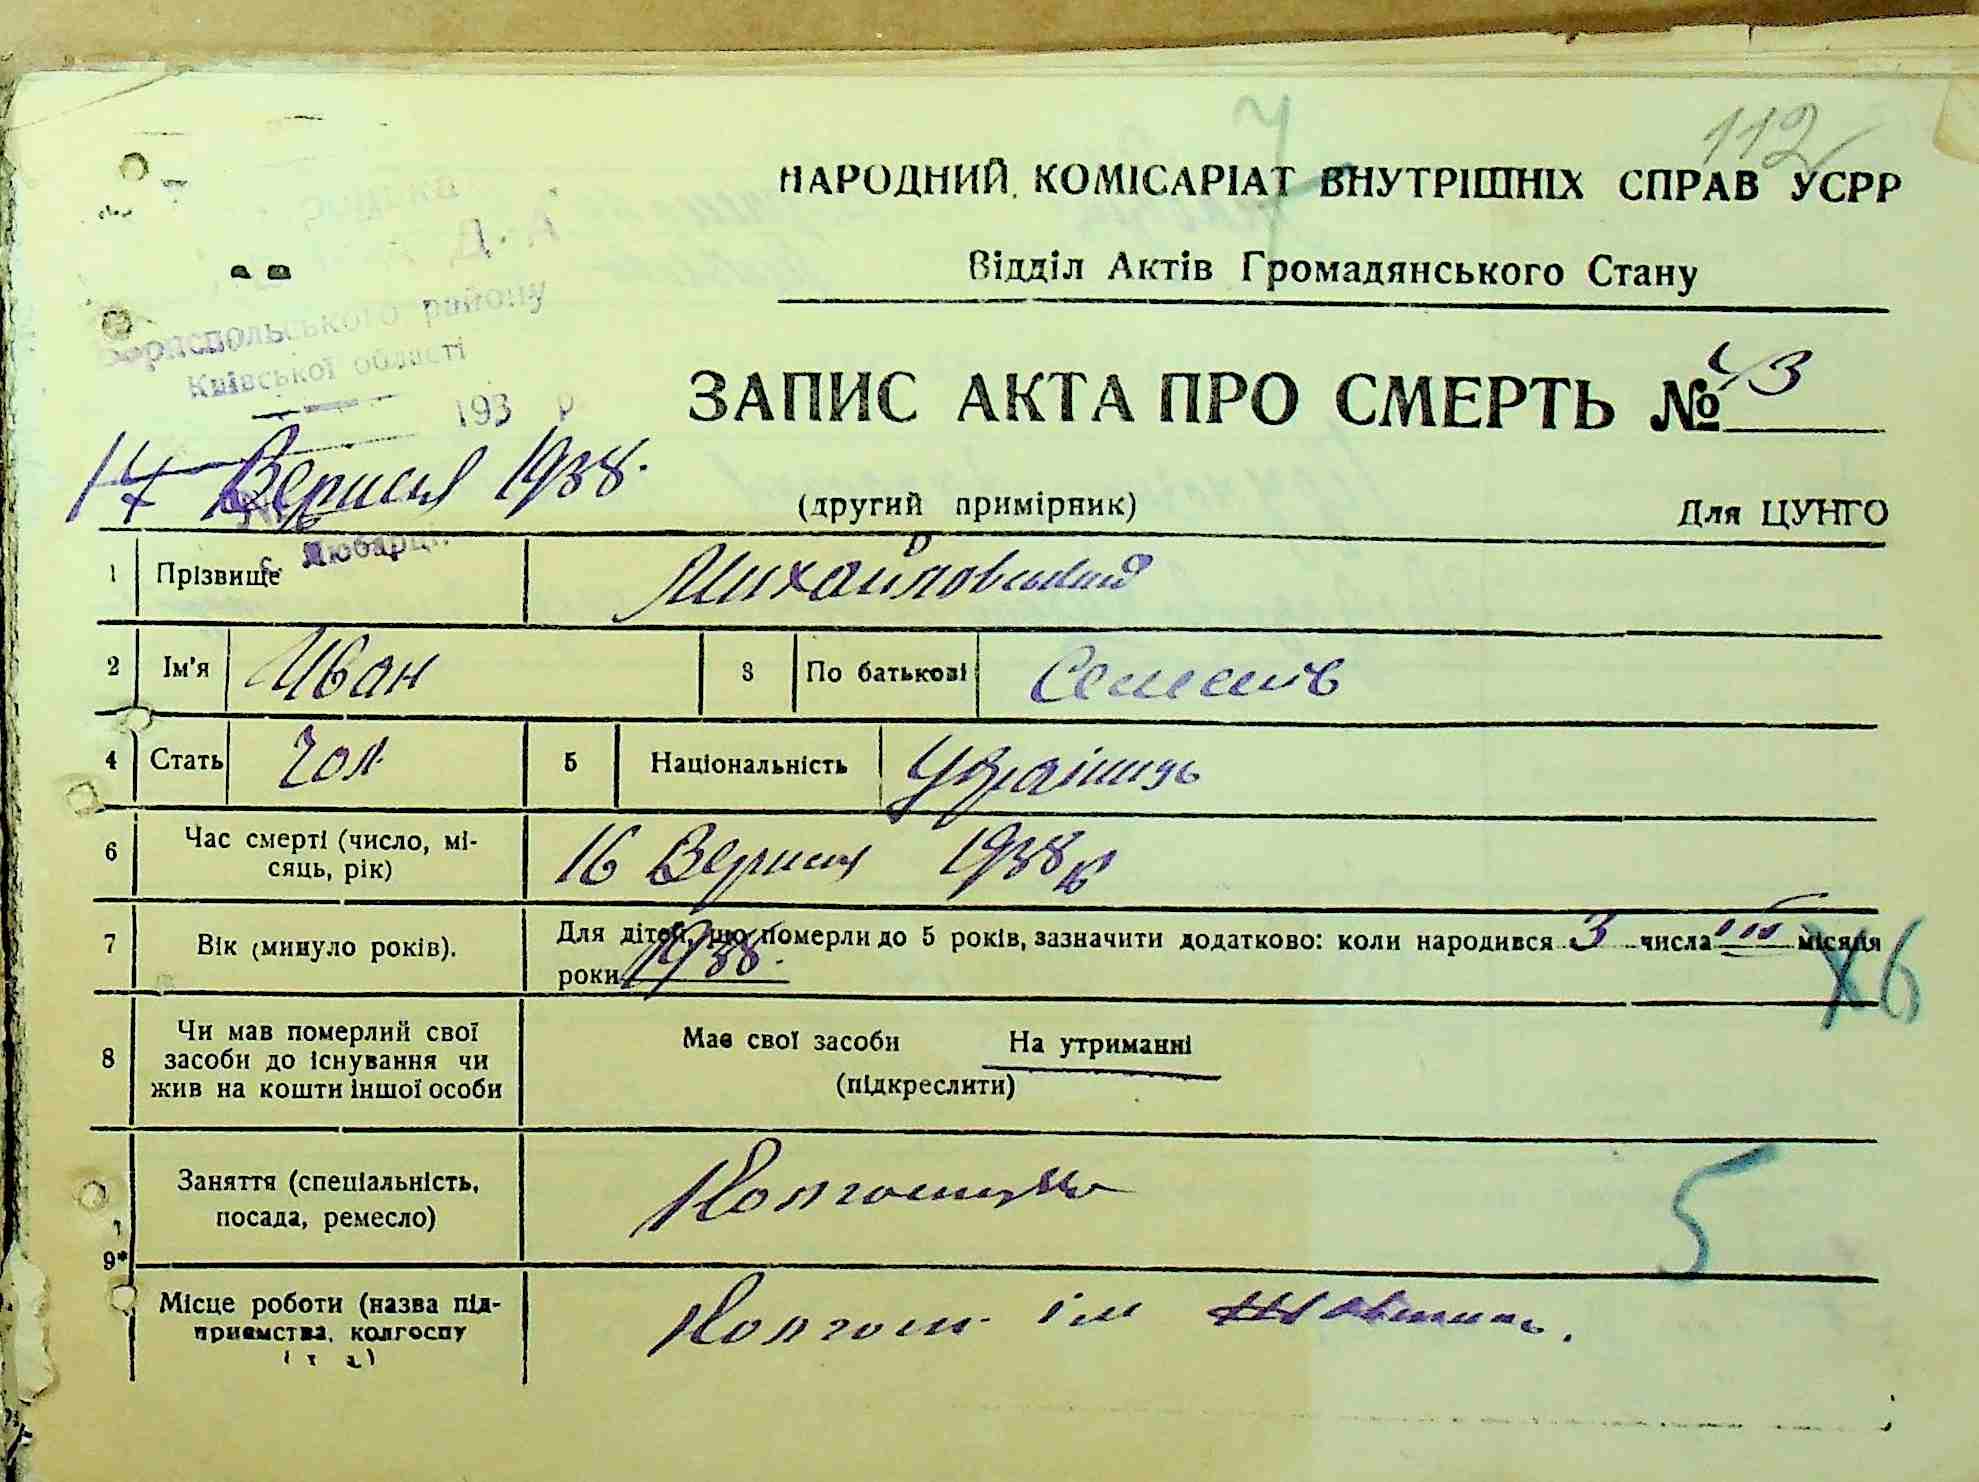 112
НАРОДНИЙ КОМІСАРІАТ ВНУТРІШНІХ СПРАВ УСРР
Відділ Актів Громадянського Стану
Бориспольського району
Київської області
193 р
ЗАПИС АКТА ПРО СМЕРТЬ № 43
17 Вересня 1938.
(другий примірник) Для ЦУНГО
с. Любарці
1 Прізвище Михайловський
2 Ім'я Иван 3 По батькові Семенів
4 Стать Чол 5 Національність Українець
6 Час смерті (число, мі-
сяць, рік) 16 Вересня 1938 р
7 Вік (минуло років). Для дітей, що померли до 5 років, зазначити додатково: коли народився 3 числа III місяця
роки 1938.
х6
8 Чи мав померлий свої
засоби до існування чи
жив на кошти іншої особи
Має свої засоби На утриманні
(підкреслити)
Заняття (спеціальність,
посада, ремесло) Колгоспник
5
9*
Місце роботи (назва під-
приємства, колгоспу
і т. д.) Колгосп ім